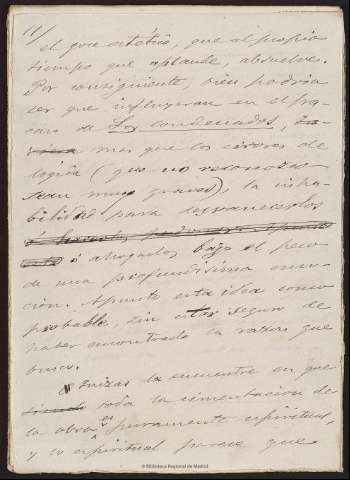 11/
el goce estético, que al propio
tiempo que aplaude, absuelve.
Por consiguiente, bien podría
ser que influyeran en el fra-
caso de Los condenados,
mas que los errores de
logica (que no reconozco
sean muy graves), la inha-
bilidad para desvanecerlos
ó ahogarlos bajo el peso
de una profundísima emo-
ción. Apunto esta idea como
probable, sin estar seguro de
haber encontrado la razon que
busco.
Quizas la encuentre en que
toda la cimentacion de
la obra es puramente espiritual,
y lo espiritual parece que
© Biblioteca Regional de Madrid